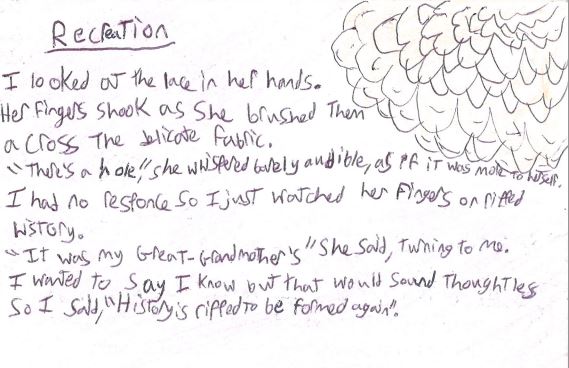 Recreation
I looked at the lace in her hands.
Her fingers shook as she brushed them
a cross the delicate fabric.
"There's a hole," she whispered barely audible, as if it was more to herself.
I had no responce so I just watched her fingers on ripped
history.
"It was my Great-Grandmother's" she said, turning to me.
I wanted to say I know but that would sound thoughtless
so I said, "History is ripped to be formed again".